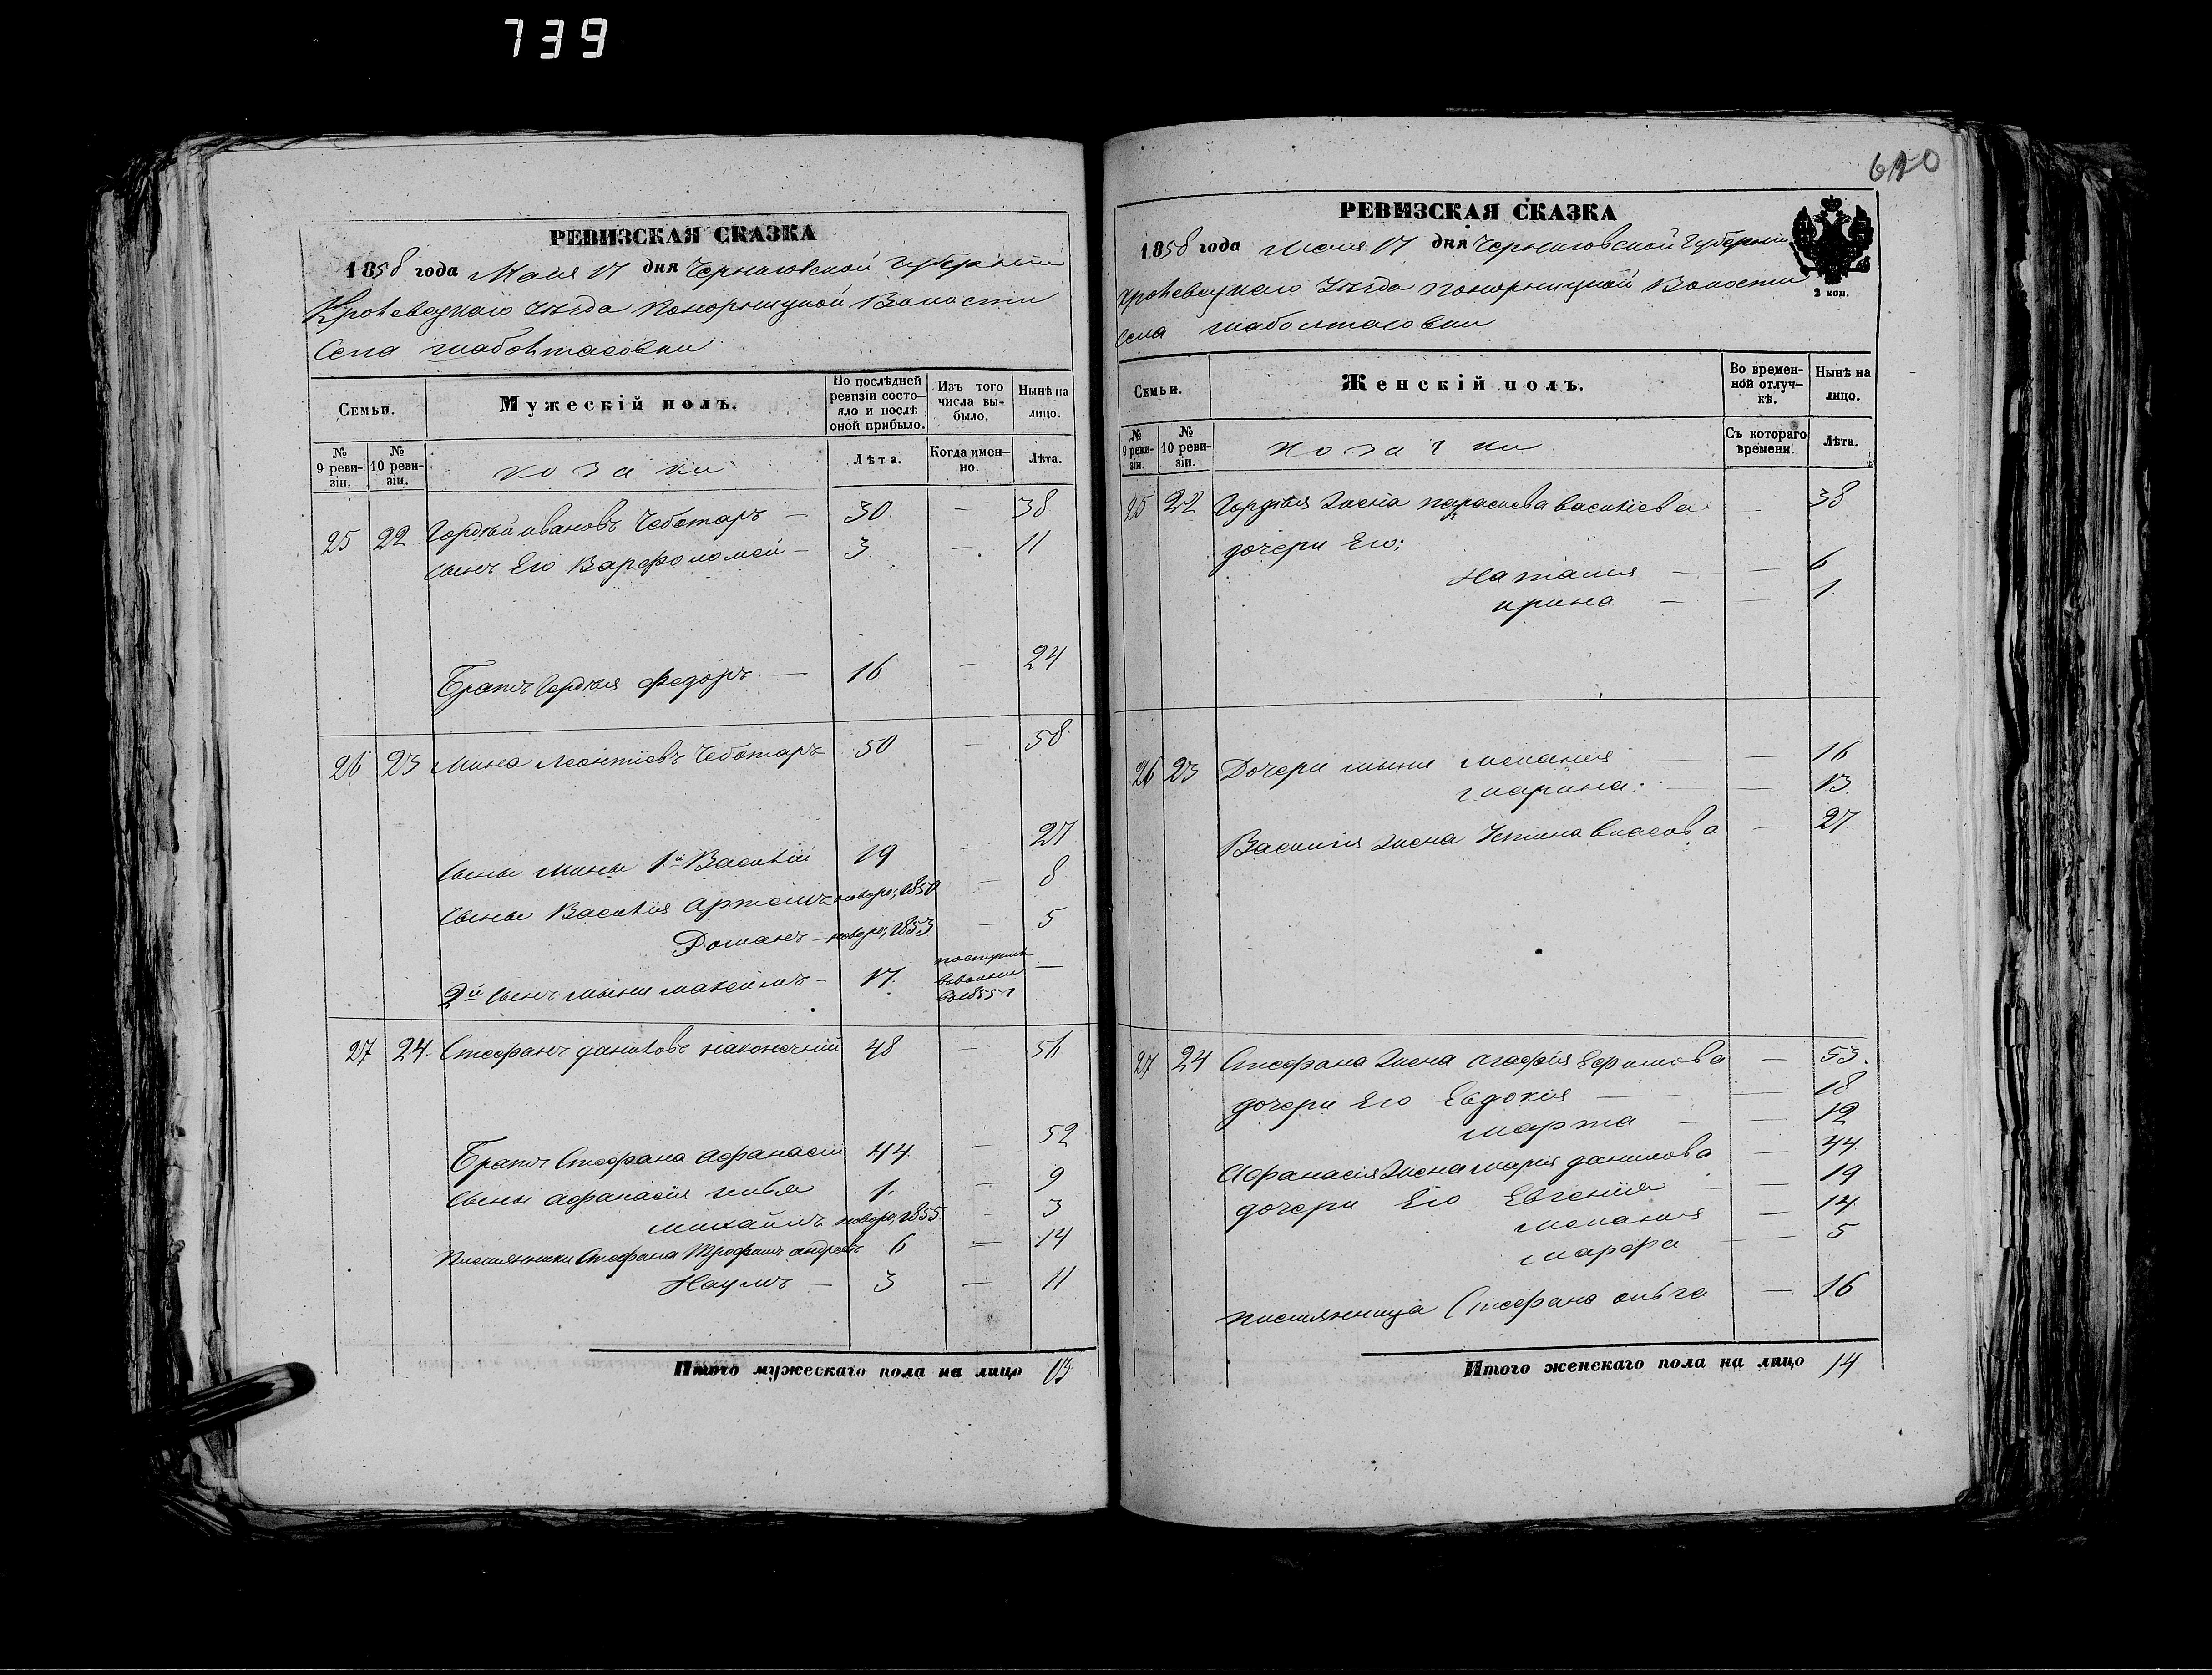 739
РЕВИЗСКАЯ СКАЗКА
1858 года Маия 17 дня Черниговской губернии
Кролевецкаго Уѣзда Понорницкой Волости
Села
Семьи.
Мужескій полъ.
По послѣдней ревизіи состо-яло и послѣ оной прибыло.
Изъ того числа вы-было.
Нынѣ на лицо.
№ 9 реви-зіи.
№ 10 реви-зіи.
козаки
Лѣта.
Когда имен-но.
Лѣта.
25 22 Гордѣй Ивановъ Чеботаръ — 30 — 38
Сынъ Его Варфоломей — 3 — 11
Братъ Гордѣя Федоръ — 16 — 24
26 23 Мина Леонтіевъ Чеботаръ 50 — 58
Сыны Мины 1й Василій 19 — 27
Сыны Василія Артемъ новоро; 1850 — 8
Романъ — новоро; 1853 — 5
2й Сынъ Мины Максимъ — 17 —
в 1855 г
27 24 Стефанъ Даниловъ Наконечній 48 — 56
Братъ Стефана Афанасій 44 — 52
Сыны Афанасія Илья 1 — 9
Михайлъ новоро; 1855 — 3
Племянники Стефана Трофимъ Андреевъ 6 — 14
Наумъ — 3 — 11
Итого мужескаго пола на лицо 13
610
РЕВИЗСКАЯ СКАЗКА
1858 года Маия 17 дня Черниговской Губерніи
2 коп.
Кролевецкаго Уѣзда Понорницкой Волости
Села
Семьи.
Женскій полъ.
Во времен-ной отлуч-кѣ.
Нынѣ на лицо.
№ 9 реви-зіи.
№ 10 реви-зіи.
козачки
Съ котораго времени.
Лѣта.
25 22 Гордѣя Жена Параскева Василіева — 38
дочери Его:
Наталия — — 6
Ирина — — 1
26 23 Дочери Мины Мелания — — 16
Марина — — 13
Василія Жена Устина Власова — 27
27 24 Стефана Жена Агафія Ефимова — 53
дочери Его Евдокия — — 18
Марта — — 12
Афанасія Жена Марія Данилова — 44
дочери Его Евгения — — 19
Мелания — 14
Марфа — — 5
племянница Стефана Ольга — 16
Итого женскаго пола на лицо 14